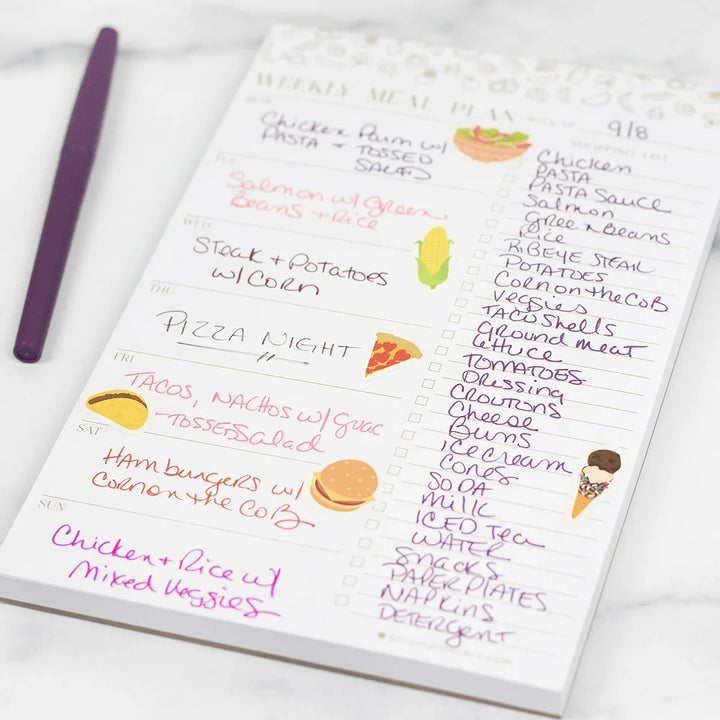 WEEKLY MEAL PLAN
WEEK OF 9/8
MON
Chicken Parm w/
PASTA + TOSSED
SALAD
TUE
Salmon w/ Green
Beans + Rice
WED
Steak + Potatoes
w/ Corn
THU
PIZZA NIGHT
FRI
TACOS, NACHOS w/ Guac
-TOSSED Salad
SAT
Hamburgers w/
Corn on the CoB
SUN
Chicken + Rice w/
Mixed Veggies
SHOPPING LIST
Chicken
PASTA
PASTA Sauce
Salmon
Green Beans
Rice
RIBEYE STEAK
POTATOES
Corn on the CoB
Veggies
TACO Shells
Ground meat
Lettuce
TOMATOES
Dressing
CROUTONS
Cheese
Buns
ICE CREAM
Cones
SODA
Milk
ICED Tea
WATER
Snacks
PAPER PLATES
NAPKINS
DETERGENT